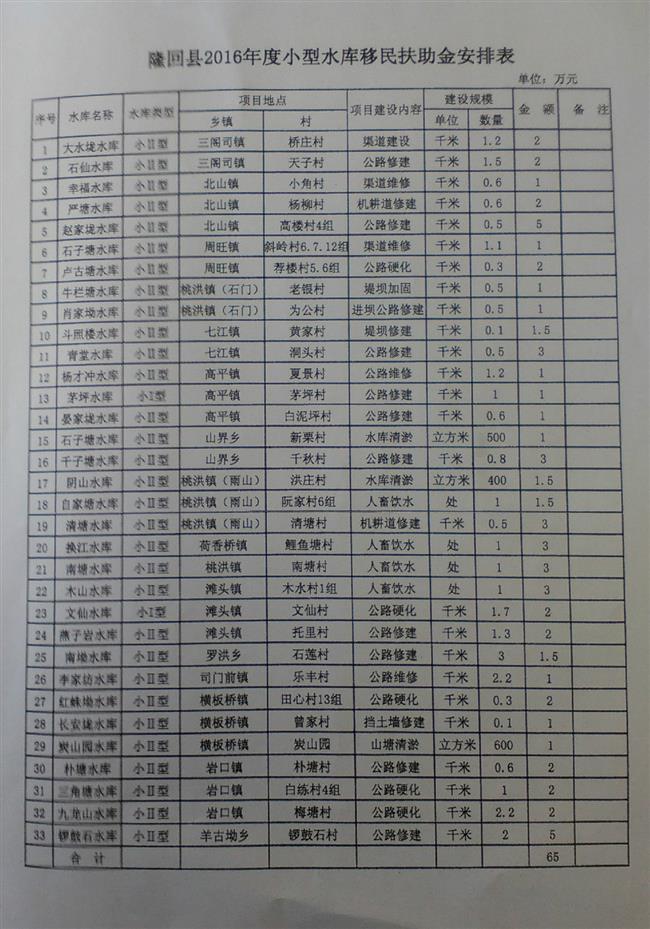 隆回县2016年度小型水库移民扶助金安排表
单位：万元
序号 水库名称 水库类型 项目地点 项目建设内容 建设规模 金 额 备 注
乡镇 村 单位 数量
1 大水垅水库 小Ⅱ型 三阁司镇 桥庄村 渠道建设 千米 1.2 2
2 石仙水库 小Ⅱ型 三阁司镇 天子村 公路修建 千米 1.5 2
3 幸福水库 小Ⅱ型 北山镇 小角村 渠道维修 千米 0.6 1
4 严塘水库 小Ⅱ型 北山镇 杨柳村 机耕道修建 千米 0.6 2
5 赵家垅水库 小Ⅱ型 北山镇 高楼村4组 公路修建 千米 0.5 5
6 石子塘水库 小Ⅱ型 周旺镇 斜岭村6.7.12组 渠道维修 千米 1.1 1
7 卢古塘水库 小Ⅱ型 周旺镇 荐楼村5.6组 公路硬化 千米 0.3 2
8 牛栏塘水库 小Ⅱ型 桃洪镇（石门） 老银村 堤坝加固 千米 0.5 1
9 肖家坳水库 小Ⅱ型 桃洪镇（石门） 为公村 进坝公路修建 千米 0.5 1
10 斗照楼水库 小Ⅱ型 七江镇 黄家村 堤坝修建 千米 0.1 1.5
11 青堂水库 小Ⅱ型 七江镇 洞头村 公路修建 千米 0.5 3
12 杨才冲水库 小Ⅱ型 高平镇 夏景村 公路维修 千米 1.2 1
13 茅坪水库 小Ⅰ型 高平镇 茅坪村 公路修建 千米 1 1
14 晏家垅水库 小Ⅱ型 高平镇 白泥坪村 公路修建 千米 0.6 1
15 石子塘水库 小Ⅱ型 山界乡 新栗村 水库清淤 立方米 500 1
16 千子塘水库 小Ⅱ型 山界乡 千秋村 公路修建 千米 0.8 3
17 阴山水库 小Ⅱ型 桃洪镇（雨山） 洪庄村 水库清淤 立方米 400 1.5
18 自家塘水库 小Ⅱ型 桃洪镇（雨山） 阮家村6组 人畜饮水 处 1 1.5
19 清塘水库 小Ⅱ型 桃洪镇（雨山） 清塘村 机耕道修建 千米 0.5 3
20 换江水库 小Ⅱ型 荷香桥镇 鲤鱼塘村 人畜饮水 处 1 3
21 南塘水库 小Ⅱ型 桃洪镇 南塘村 人畜饮水 处 1 3
22 木山水库 小Ⅱ型 滩头镇 木水村1组 人畜饮水 处 1 3
23 文仙水库 小Ⅰ型 滩头镇 文仙村 公路硬化 千米 1.7 2
24 燕子岩水库 小Ⅱ型 滩头镇 托里村 公路修建 千米 1.3 2
25 南坳水库 小Ⅱ型 罗洪乡 石莲村 公路修建 千米 3 1.5
26 李家坊水库 小Ⅱ型 司门前镇 乐丰村 公路维修 千米 2.2 1
27 红蛛坳水库 小Ⅱ型 横板桥镇 田心村13组 公路硬化 千米 0.3 2
28 长安垅水库 小Ⅱ型 横板桥镇 曾家村 挡土墙修建 千米 0.1 1
29 炭山园水库 小Ⅱ型 横板桥镇 炭山园 山塘清淤 立方米 600 1
30 朴塘水库 小Ⅱ型 岩口镇 朴塘村 公路修建 千米 0.6 2
31 三角塘水库 小Ⅱ型 岩口镇 白练村4组 公路硬化 千米 1 2
32 九龙山水库 小Ⅱ型 岩口镇 梅塘村 公路硬化 千米 2.2 2
33 锣鼓石水库 小Ⅱ型 羊古坳乡 锣鼓石村 公路修建 千米 2 5
合 计 65